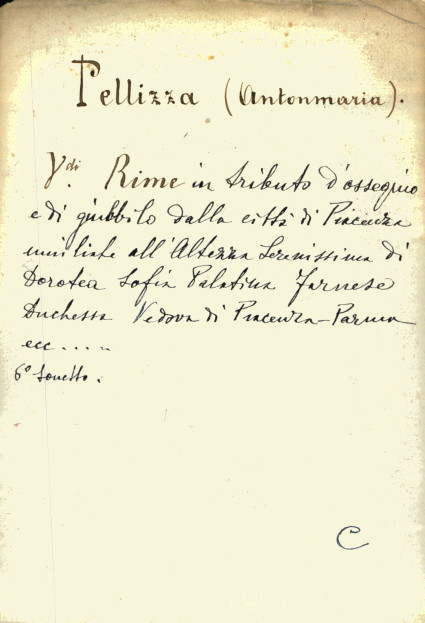 Pellizza (Antonmaria).
Vdi. Rime in tributo d'ossequio
e di giubbilo dalla città di Piacenza
umiliate all'Altezza Serenissima di
Dorotea Sofia Palatina Farnese
Duchessa Vedova di Piacenza-Parma
ecc.....
6° Sonetto.
C